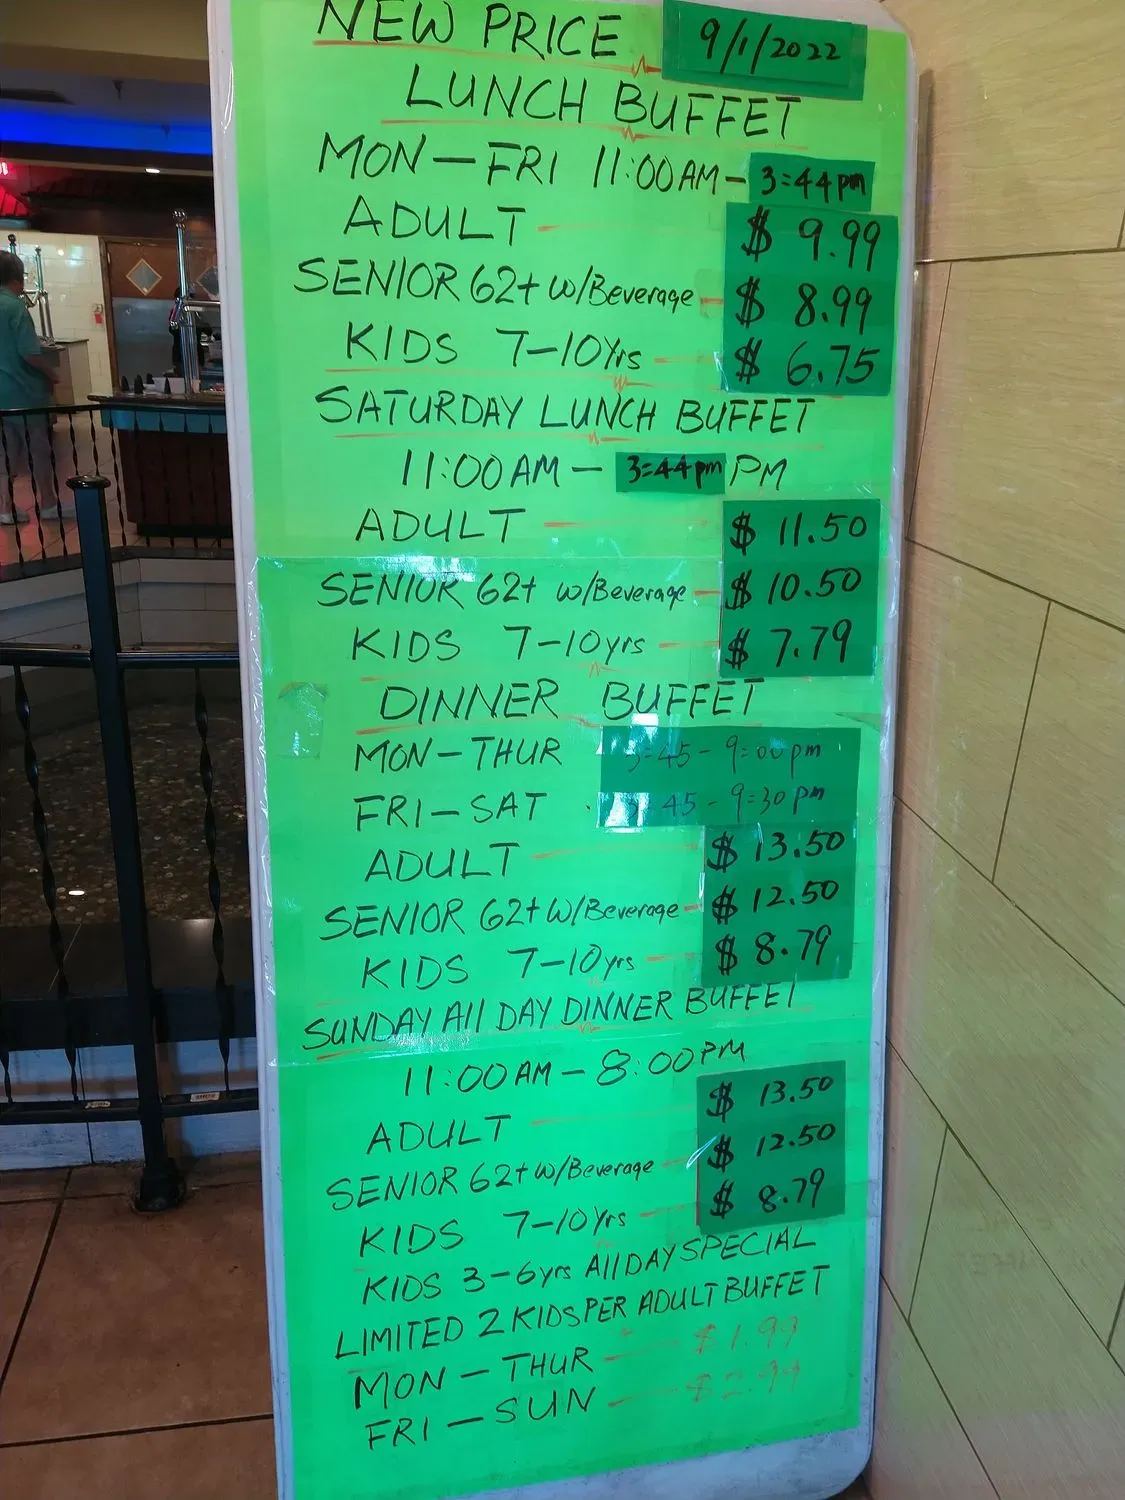 NEW PRICE 9/1/2022
LUNCH BUFFET
MON-FRI 11:00AM- 3:44pm
ADULT $ 9.99
SENIOR 62+ w/Beverage $ 8.99
KIDS 7-10Yrs $ 6.75
SATURDAY LUNCH BUFFET
11:00AM- 3:44pm PM
ADULT $ 11.50
SENIOR 62+ w/Beverage $ 10.50
KIDS 7-10yrs $ 7.79
DINNER BUFFET
MON-THUR 3:45 - 9:00pm
FRI-SAT 3:45 - 9:30pm
ADULT $ 13.50
SENIOR 62+ w/Beverage $ 12.50
KIDS 7-10yrs $ 8.79
SUNDAY All DAY DINNER BUFFET
11:00AM-8:00PM
ADULT $ 13.50
SENIOR 62+ w/Beverage $ 12.50
KIDS 7-10Yrs $ 8.79
KIDS 3-6yrs All DAY SPECIAL
LIMITED 2 KIDS PER ADULT BUFFET
MON-THUR $1.99
FRI-SUN $2.99